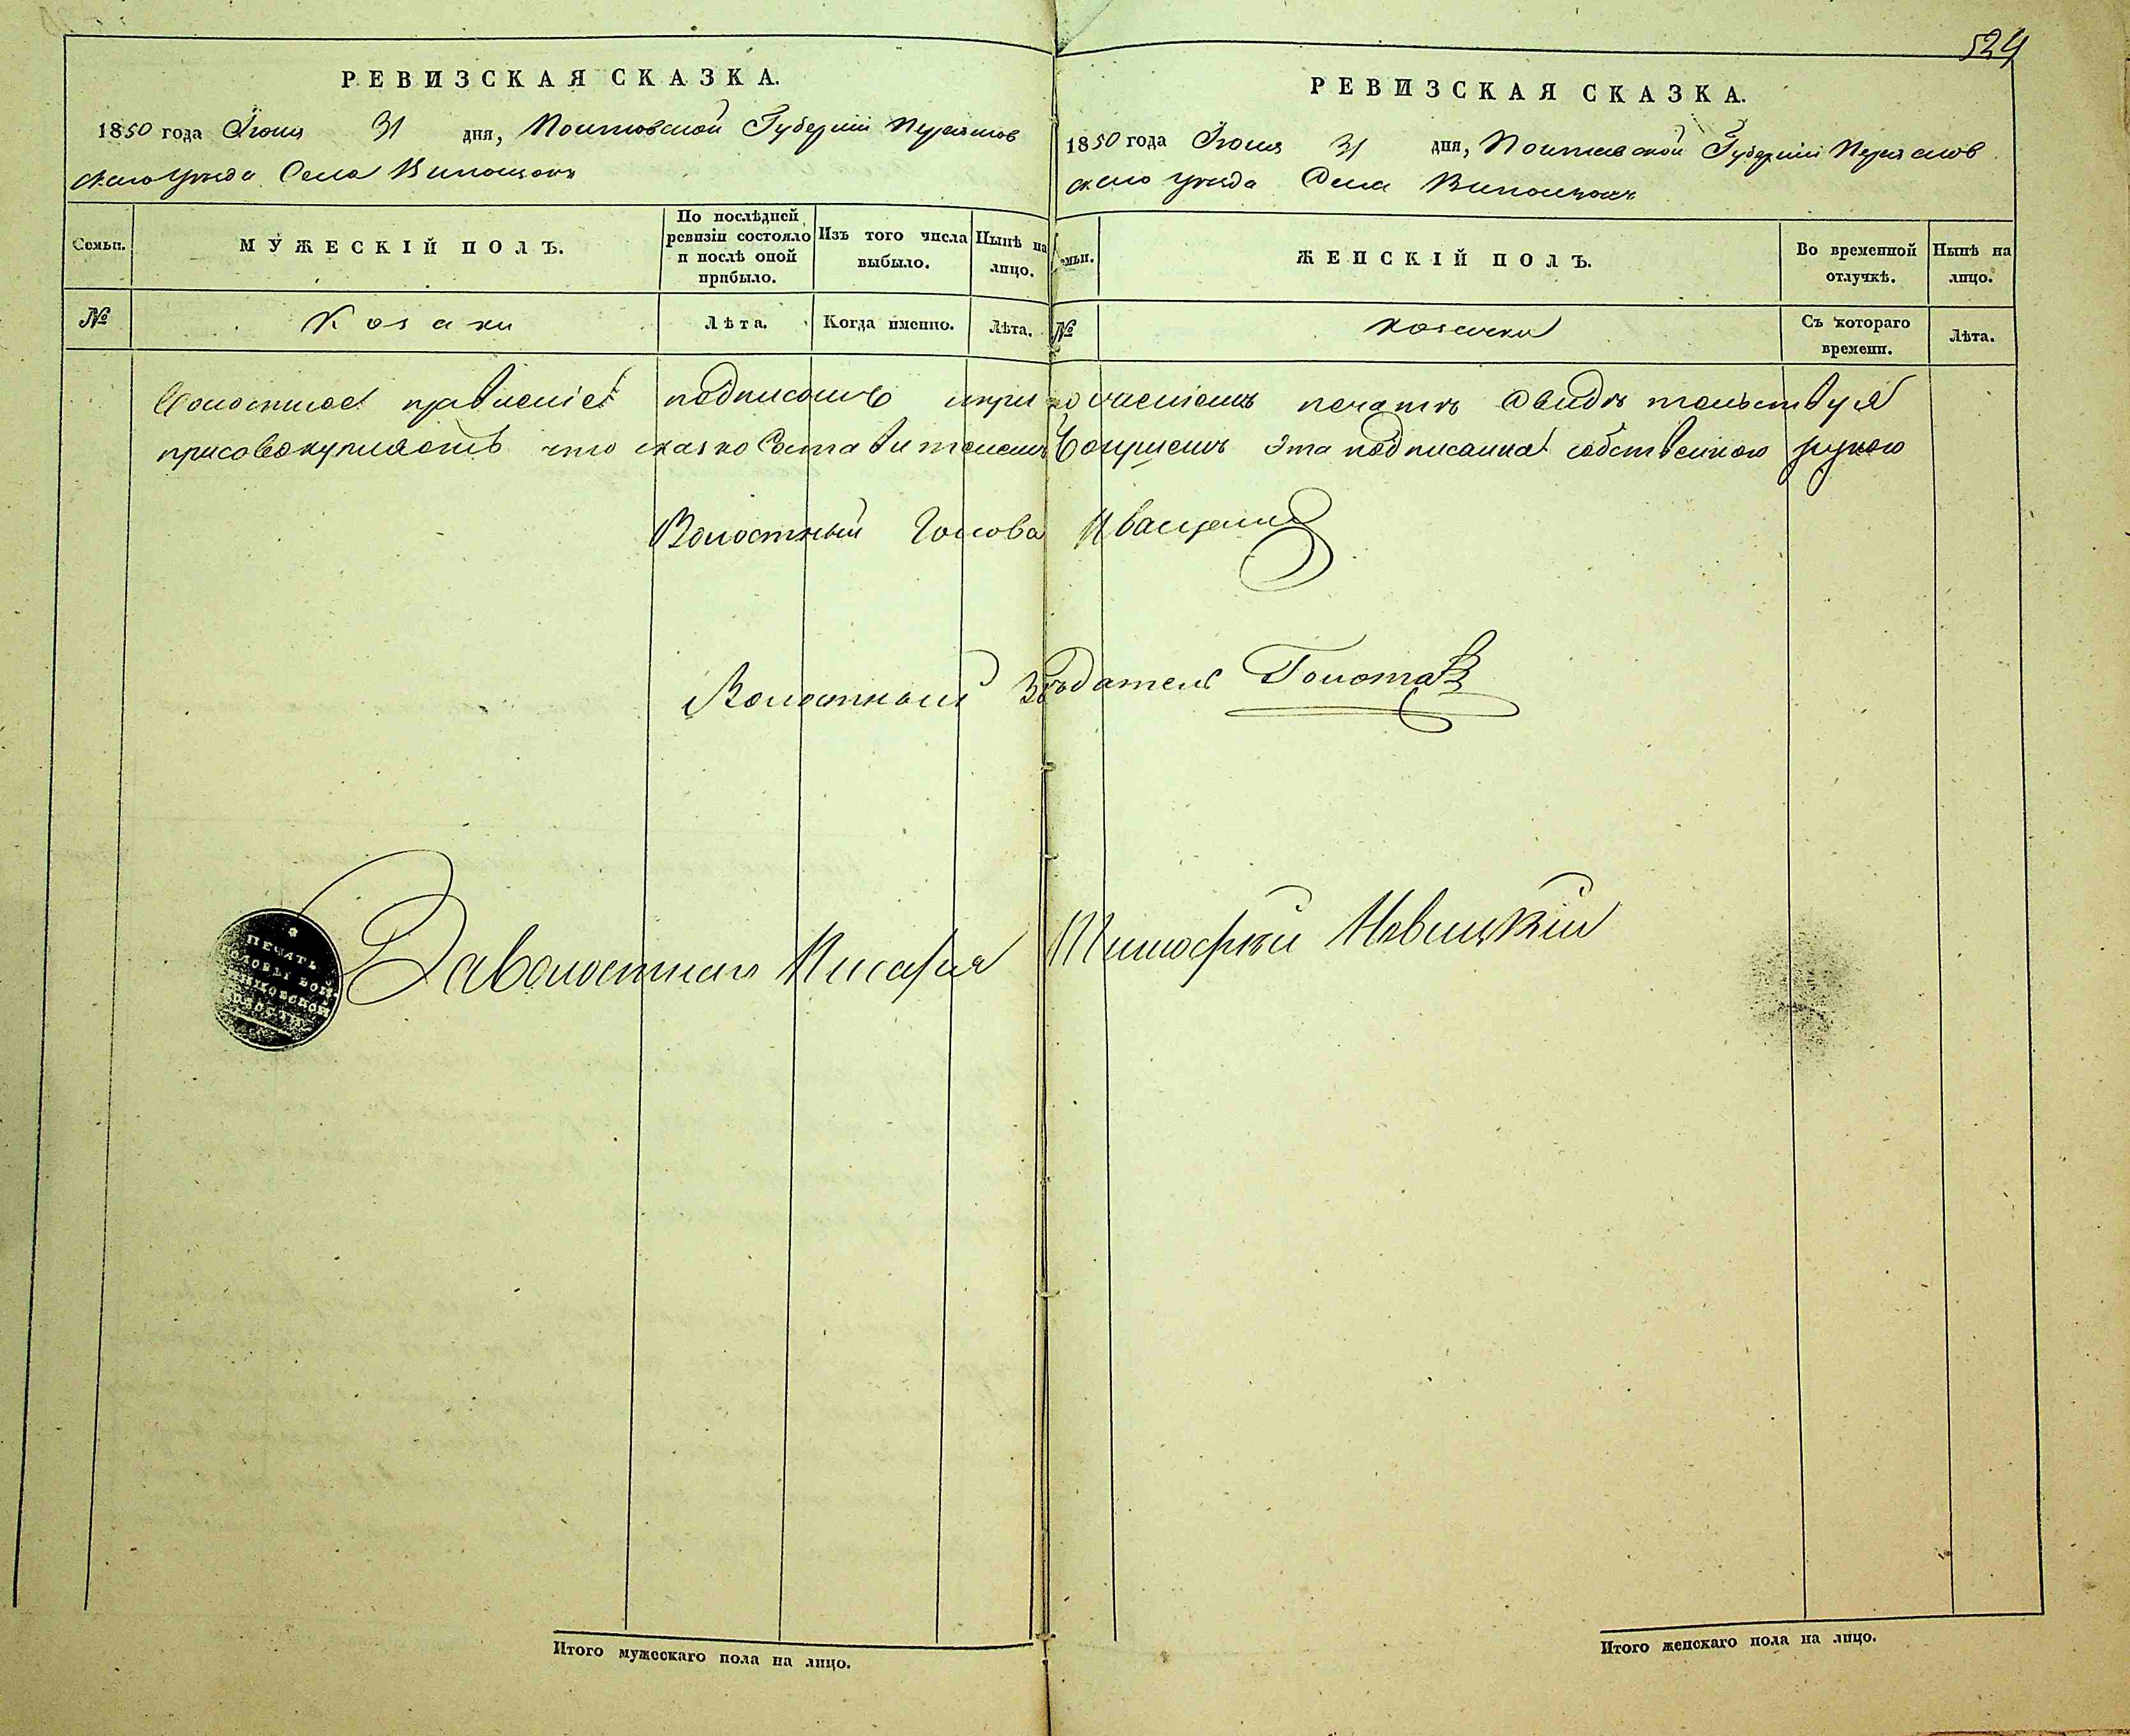 524
РЕВИЗСКАЯ СКАЗКА.
1850 года Июня 31 дня, Полтавской Губерніи Переяслов
скаго уезда Села
Семьи.
МУЖЕСКІЙ ПОЛЪ.
По послѣдней ревизіи состояло и послѣ оной прибыло.
Изъ того числа выбыло.
Нынѣ на лицо.
№
Козаки
Лѣта.
Когда именно.
Лѣта.
РЕВИЗСКАЯ СКАЗКА.
1850 года Июня 31 дня, Полтавской Губерніи Переяслов
скаго уезда Села
Семьи.
ЖЕНСКІЙ ПОЛЪ.
Во временной отлучкѣ.
Нынѣ на лицо.
№
козачки
Съ котораго времени.
Лѣта.
Волостное правленіе подписомъ и приложеніемъ печати свидѣтельствуя
присовокупляетъ что сказко Составителемъ эта подписанна собственною рукою
Волостный Голова Иващенко
Волостный Голота
За волостнаго Писаря Тимофей Невицкій
ПЕЧАТЬ
ГОЛОВЫ
Итого мужескаго пола на лицо.
Итого женскаго пола на лицо.